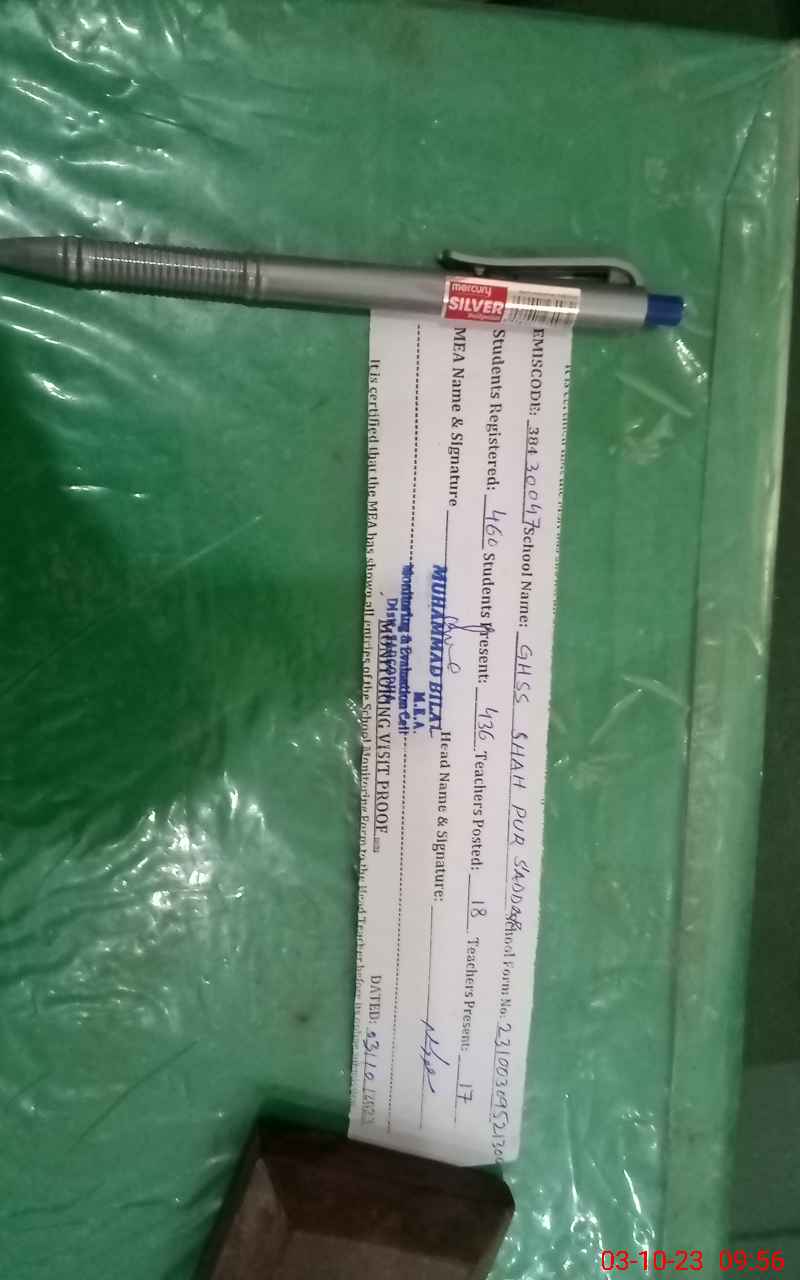 mercury
SILVER
EMISCODE: 38430047 School Name: GHSS SHAH PUR SADDAR School Form No: 2310030952130
Students Registered: 460 Students Present: 436 Teachers Posted: 18 Teachers Present: 17
MEA Name & Signature Head Name & Signature:
MUHAMMAD BILAL
M.E.A.
Monitoring & Evaluation Cell
Distt. SARGODHA
MONITORING VISIT PROOF
DATED: 03/10/2023
It is certified that the MEA has shown all entries of the School Monitoring Form to the Head Teacher before its
03-10-23 09:56